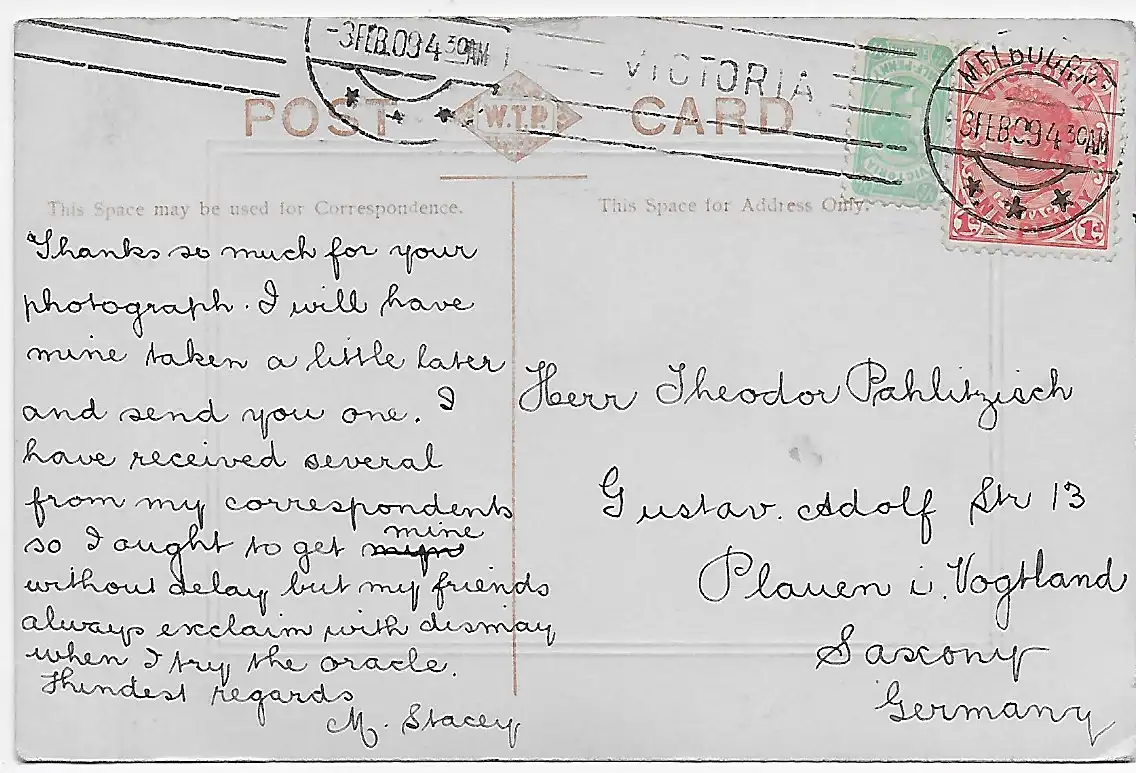 -3FEB.09 4 30AM
VICTORIA
MELBOURNE
-3FEB.09 4 30AM
VICTORIA
1d 1d
POST W.T.P. CARD
This Space may be used for Correspondence.
This Space for Address Only.
Thanks so much for your
photograph. I will have
mine taken a little later
and send you one. I
have received several
from my correspondents
so I ought to get mine
without delay but my friends
always exclaim with dismay
when I try the oracle.
Kindest regards
M. Stacey
Herr Theodor Pahlitzisch
Gustav. Adolf Str 13
Plauen i. Vogtland
Saxony
Germany